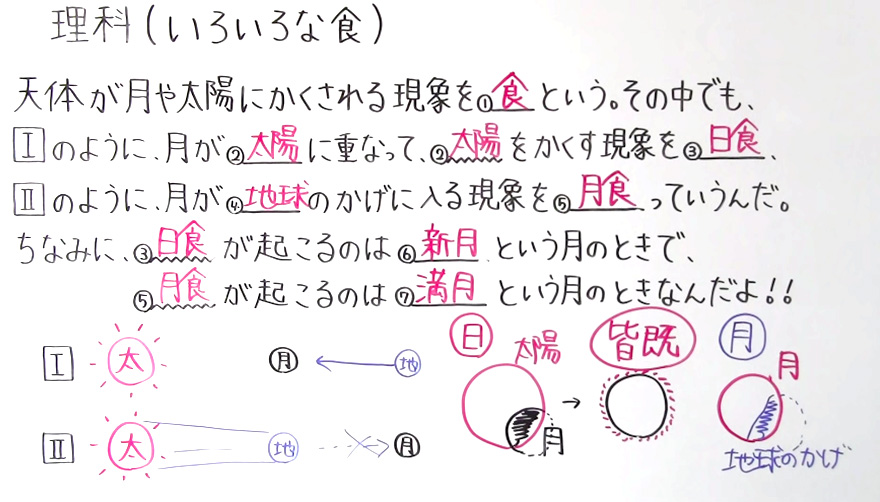 理科(いろいろな食)
天体が月や太陽にかくされる現象を①食という。その中でも、
Ⅰのように、月が②太陽に重なって、②太陽をかくす現象を③日食、
Ⅱのように、月が④地球のかげに入る現象を⑤月食っていうんだ。
ちなみに、③日食が起こるのは⑥新月という月のときで、
⑤月食が起こるのは⑦満月という月のときなんだよ!!
Ⅰ 太 月 ← 地
Ⅱ 太 地 月
日 太陽 月 → 皆既
月 月 地球のかげ